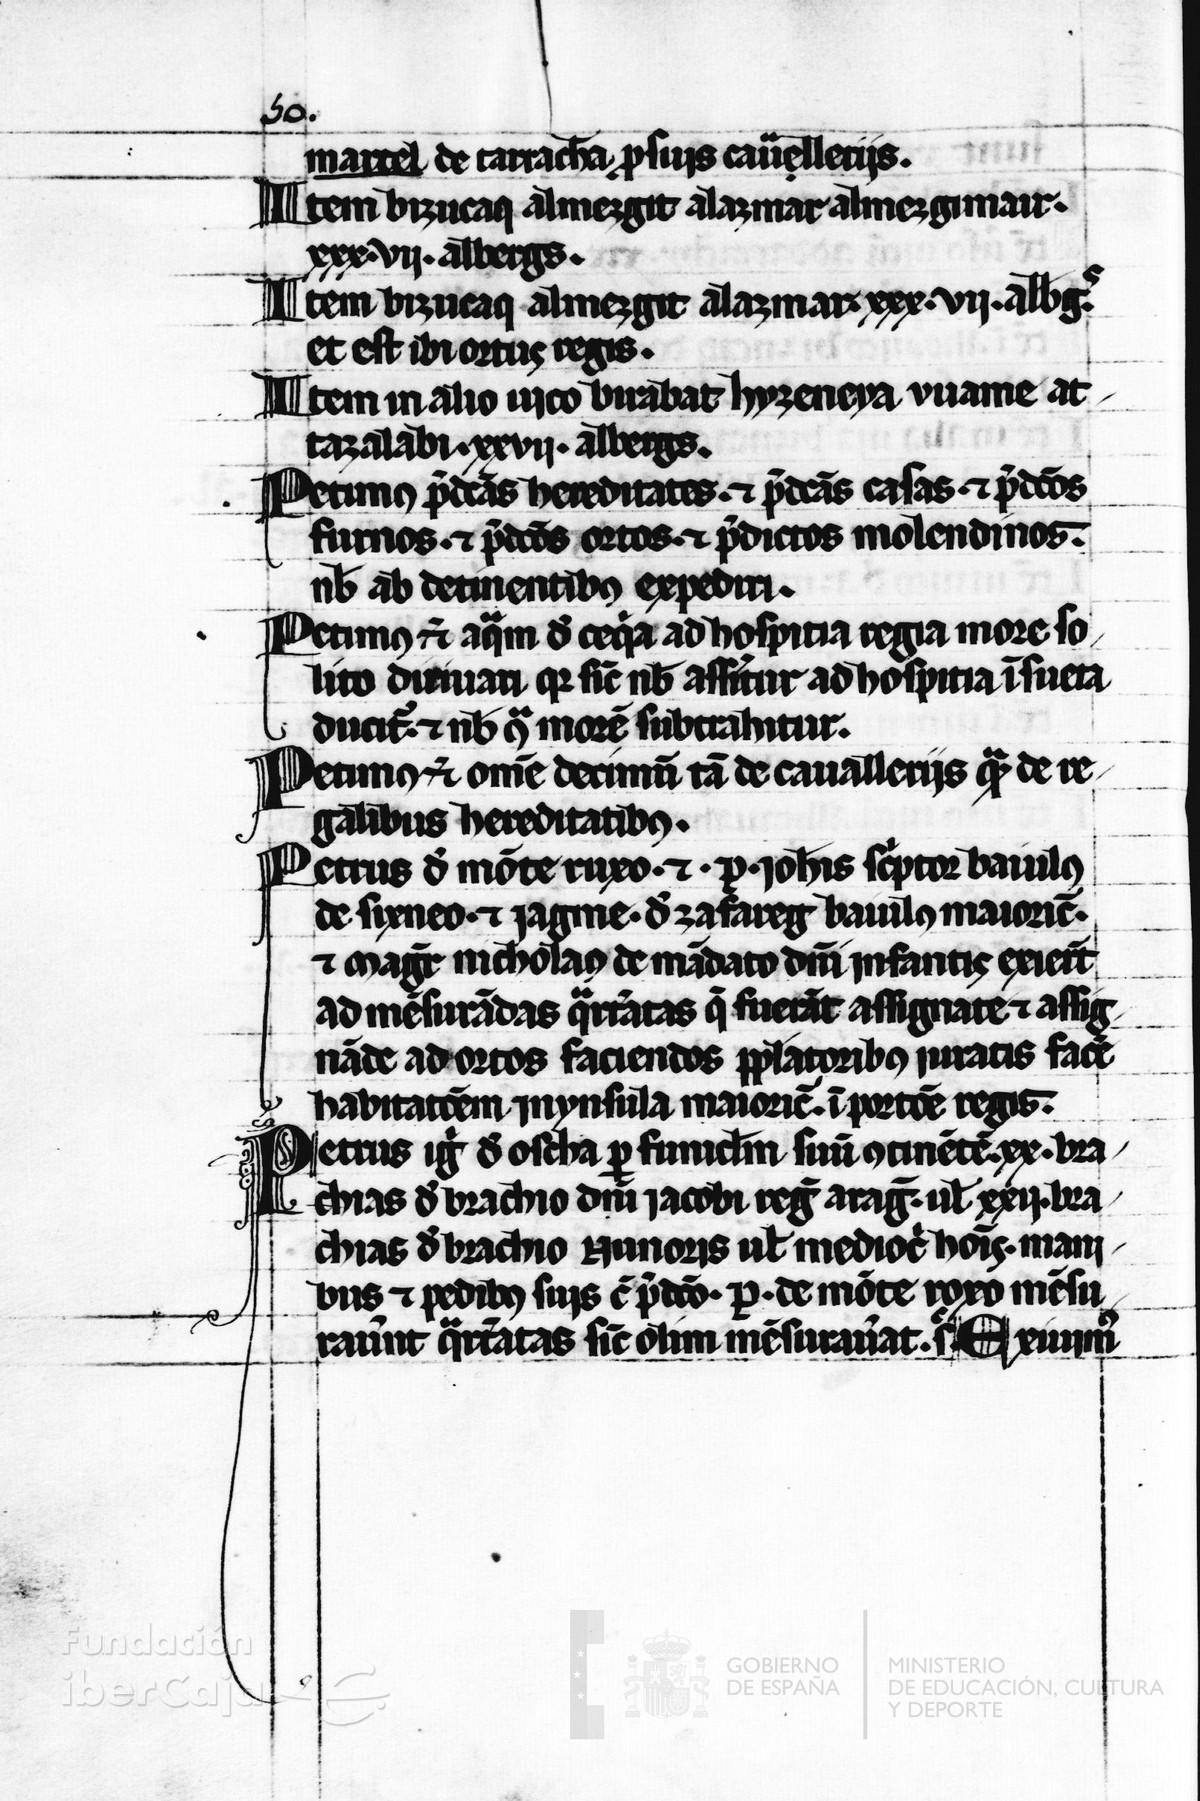 50.
martel de tarracha p suis cauelleriis.
Item bizucaq almezgit alazmar almezgimair.
xxx.vij. albergs.
Item bizucaq almezgit alazmar xxx.vij. albg̃s
et est ibi ortus regis.
Item in alio uico burabat hyzeneya vuame at
tazalabi. xxvij. albergs.
Petimꝰ p̃dc̃as hereditates. ⁊ p̃dc̃as casas. ⁊ p̃dc̃os
furnos. ⁊ p̃dc̃os ortos. ⁊ p̃dictos molendinos.
nb̃ ab detinentibꝰ expediri.
Petimꝰ ⁊ aq̃m d̃ ceq̃a ad hospitia regia more so
lito diriuari qr sic̃ nb̃ assit̃ur ad hospitia ĩsueta
ducit̃. ⁊ nb̃ q̃ morẽ subtrahitur.
Petimꝰ ⁊ om̃e decimũ tã de cauallerijs q̃ de re
galibus hereditatibꝰ.
Petrus d̃ mõte ruxo. ⁊ . p. joh̃is sc̃ptor baiulꝰ
de sixneo. ⁊ jagme. d̃ zafareg baiulꝰ maioric̃.
⁊ mag̃r nicholaꝰ de mãdato dñi infantis exier̃t
ad mẽsurãdas q̃rt̃atas q̃ fuer̃t assignate ⁊ assig
nãde ad ortos faciendos pplatoribꝰ iuratis fac̃e
habitatõem jnynsula maioric̃. ĩ portõe regis.
Petrus ig̃ d̃ oscha p funiclm̃ suũ ꝯtinẽtẽ. xx. bra
chias d̃ brachio dñi jacobi reg̃ arag̃. ul̃ xxij. bra
chias d̃ brachio Nunonis ul̃ medioc̃ hoĩs. mani
bus ⁊ pedibꝰ suis c̃ p̃dc̃o. p. de mõte roxo mẽsu
rauer̃t q̃rt̃atas sic̃ olim mẽsurauer̃at. s̃. Exiuim̃
Fundación
iberCaja
GOBIERNO
DE ESPAÑA
MINISTERIO
DE EDUCACIÓN, CULTURA
Y DEPORTE